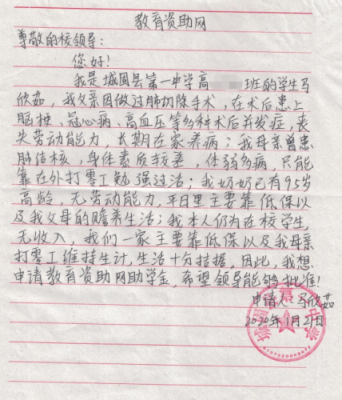 教育资助网
尊敬的校领导:
您好!
我是城固县第一中学高 班的学生马
欣茹,我父亲因做过肺切除手术,在术后患上
脑梗、冠心病、高血压等多种术后并发症,丧
失劳动能力,长期在家养病;我母亲曾患
肺结核,身体素质较差,体弱多病,只能
靠在外打零工勉强过活;我奶奶已有95岁
高龄,无劳动能力,平日里主要靠低保以
及我父母的赡养生活;我本人仍为在校学生,
无收入,我们一家主要靠低保以及我母亲
打零工维持生计,生活十分拮据。因此,我想
申请教育资助网助学金,希望领导能够批准!
申请人:马欣茹
2020年1月2日